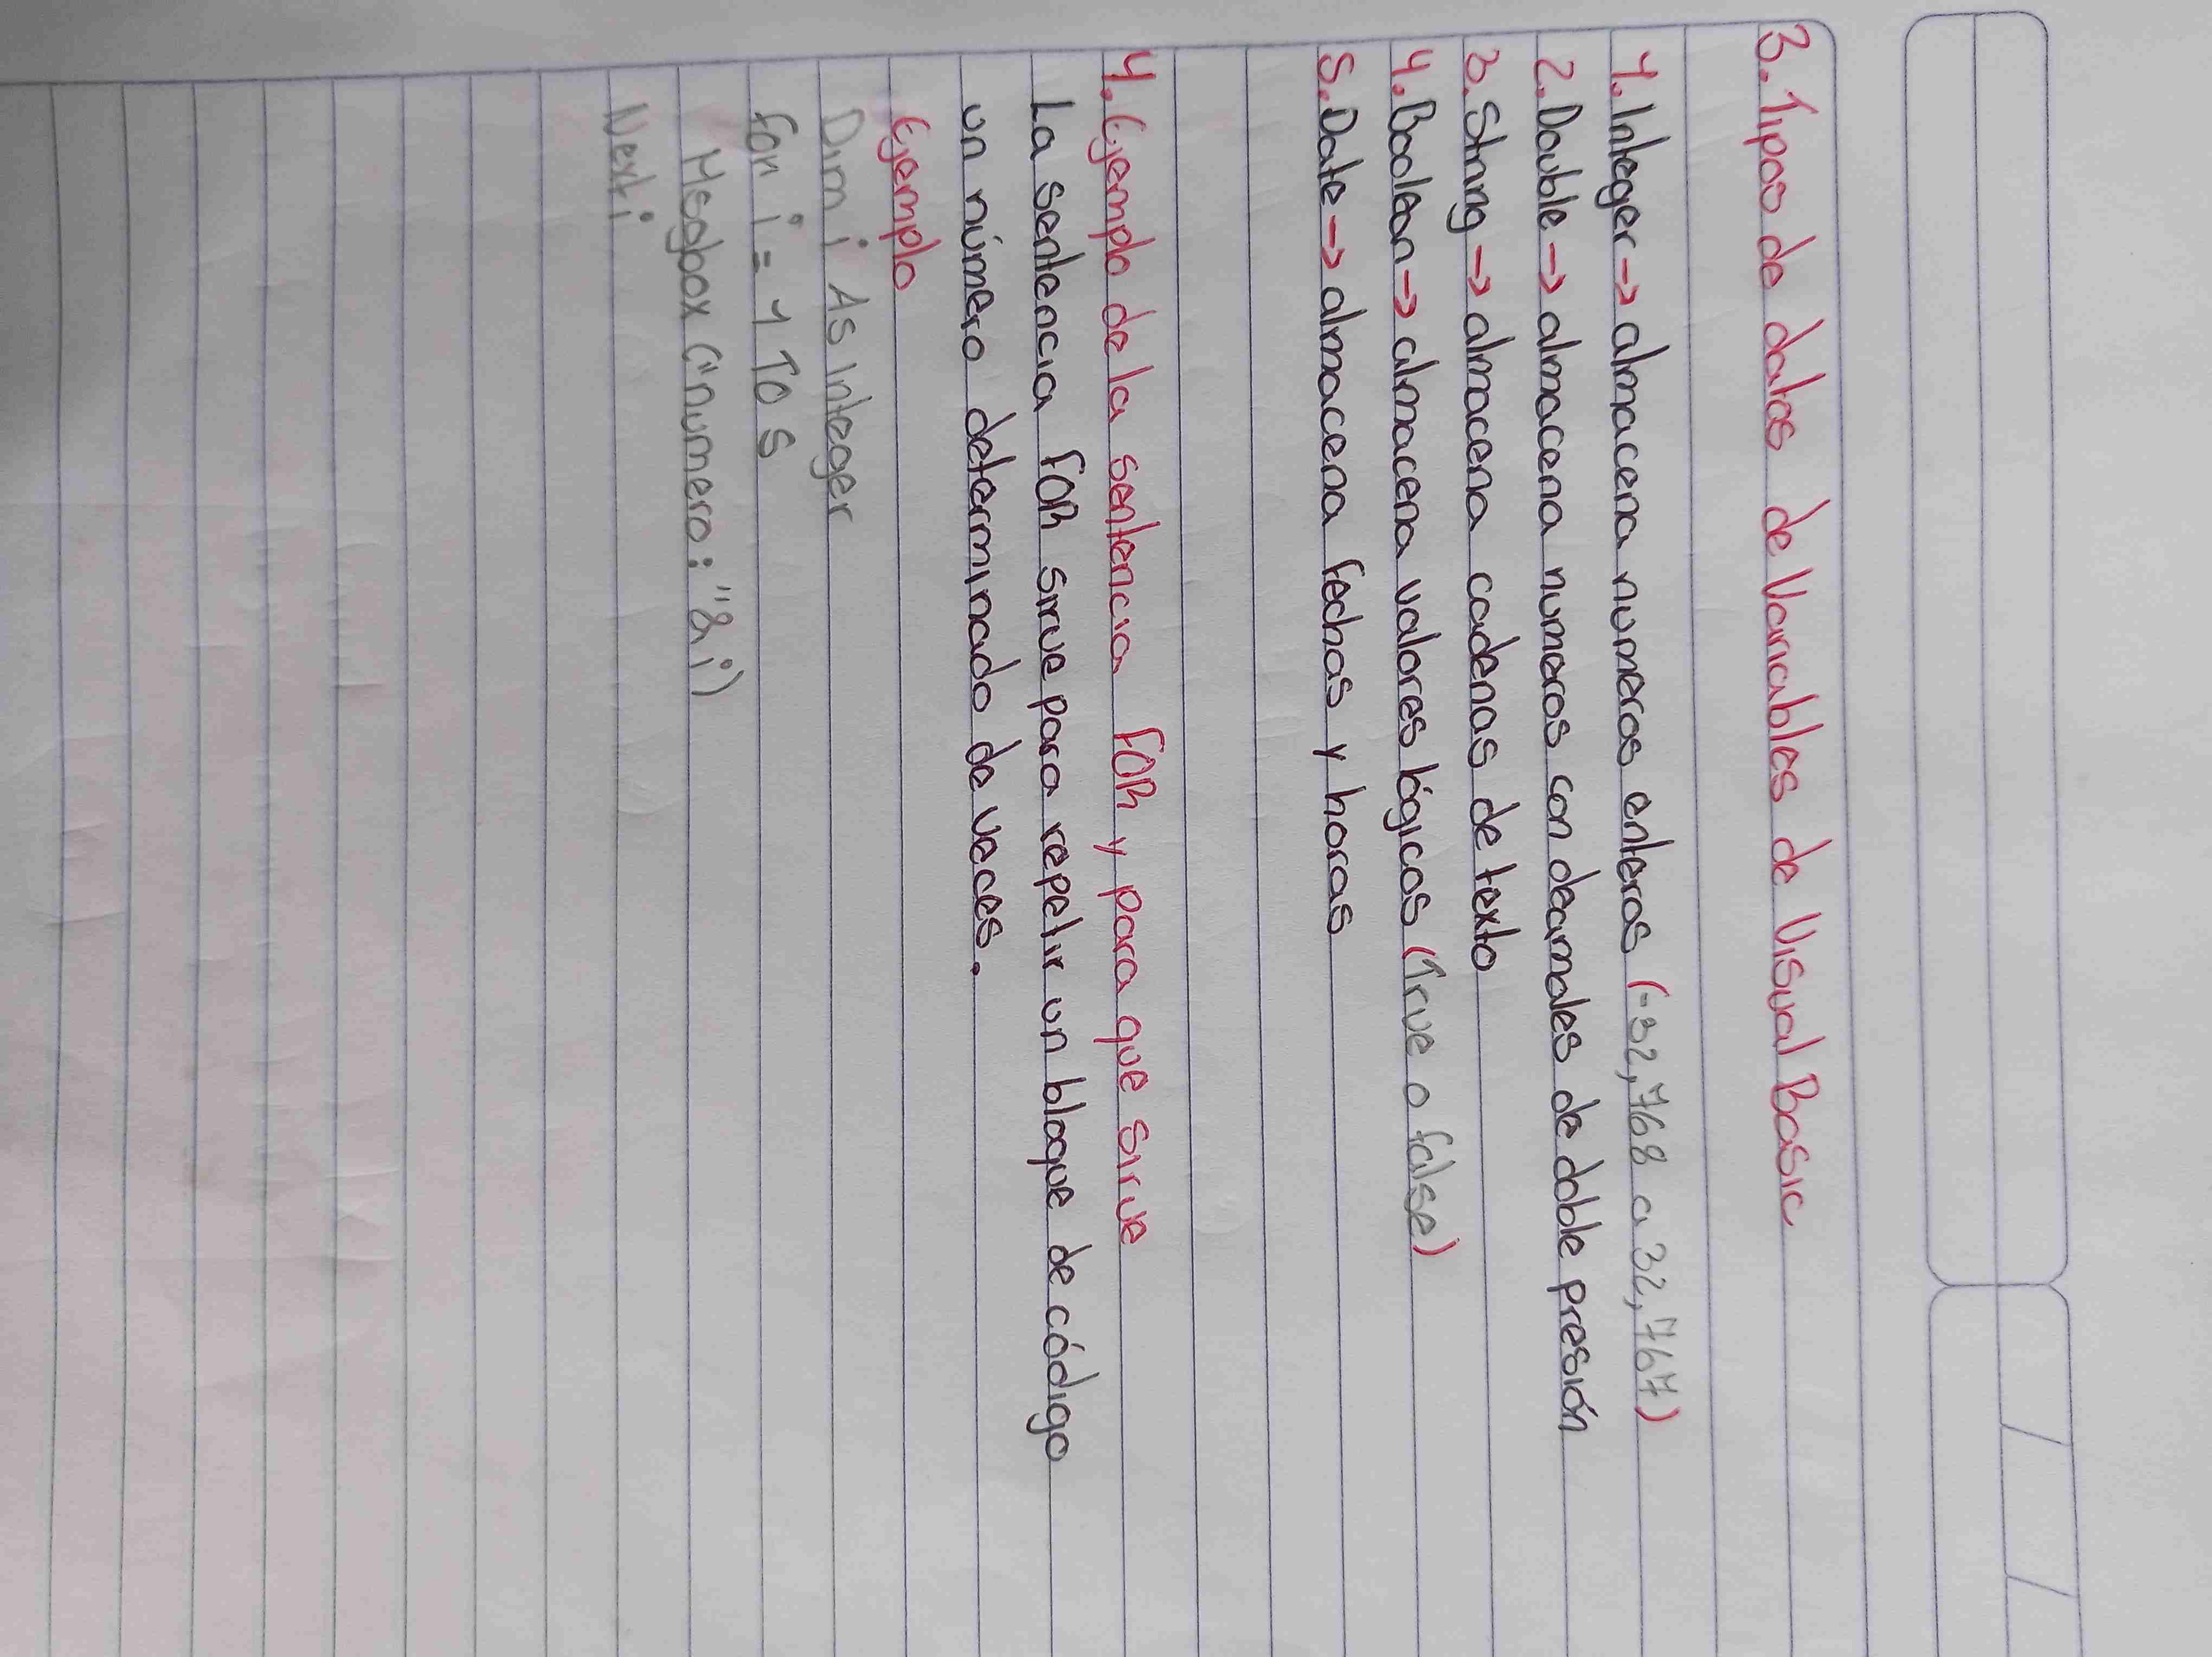 3. Tipos de datos de Variables de Visual Basic
1. Integer → almacena numeros enteros (-32,768 a 32,767)
2. Double → almacena numeros con decimales de doble presión
3. String → almacena cadenas de texto
4. Boolean → almacena valores lógicos (True o false)
5. Date → almacena fechas y horas
4. Ejemplo de la sentencia FOR y para que sirve
La sentencia FOR sirve para repetir un bloque de código
un número determinado de veces.
Ejemplo
Dim i As Integer
for i = 1 TO 5
Msgbox ("numero: "& i)
Next i